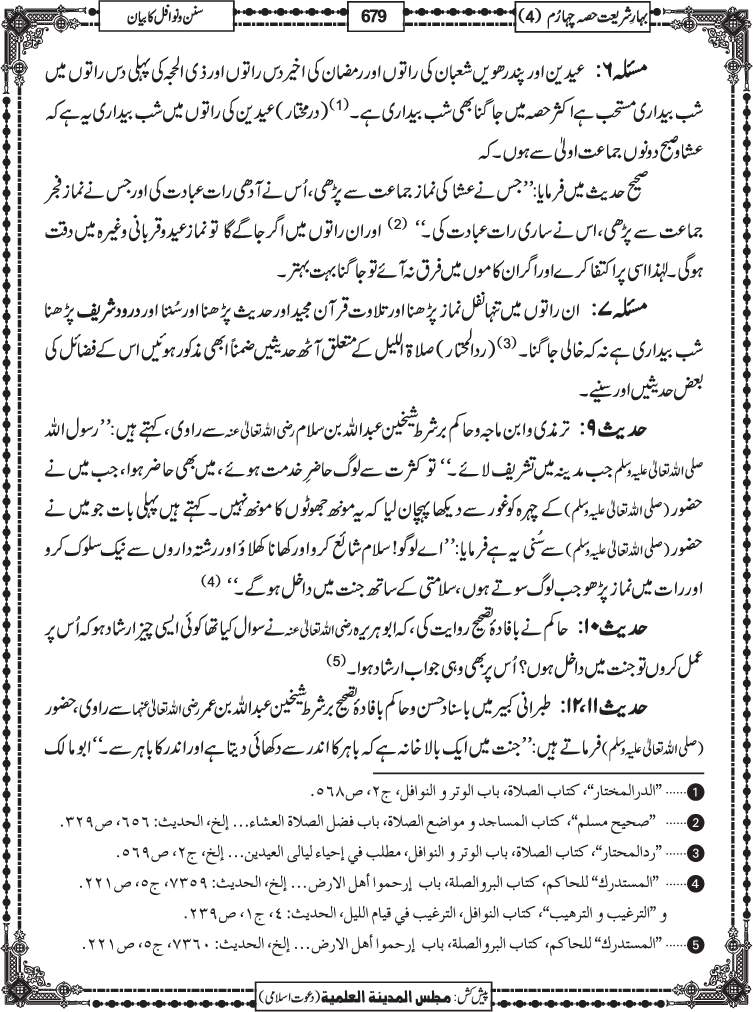 بہارِ شریعت حصہ چہارم (4)
679
سنن و نوافل کا بیان
مسئلہ ۶: عیدین اور پندرھویں شعبان کی راتوں اور رمضان کی اخیر دس راتوں اور ذی الحجہ کی پہلی دس راتوں میں
شب بیداری مستحب ہے اکثر حصہ میں جاگنا بھی شب بیداری ہے۔(1) (درمختار) عیدین کی راتوں میں شب بیداری یہ ہے کہ
عشا و صبح دونوں جماعت اولیٰ سے ہوں۔ کہ
صحیح حدیث میں فرمایا: ’’جس نے عشا کی نماز جماعت سے پڑھی، اُس نے آدھی رات عبادت کی اور جس نے نماز فجر
جماعت سے پڑھی، اس نے ساری رات عبادت کی۔‘‘ (2) اور ان راتوں میں اگر جاگے گا تو نماز عید و قربانی وغیرہ میں دقت
ہوگی۔ لہٰذا اسی پر اکتفا کرے اور اگر ان کاموں میں فرق نہ آئے تو جاگنا بہت بہتر۔
مسئلہ ۷: ان راتوں میں تنہا نفل نماز پڑھنا اور تلاوت قرآن مجید اور حدیث پڑھنا اور سُننا اور درود شریف پڑھنا
شب بیداری ہے نہ کہ خالی جاگنا۔(3) (ردالمحتار) صلاۃ اللیل کے متعلق آٹھ حدیثیں ضمناً ابھی مذکور ہوئیں اس کے فضائل کی
بعض حدیثیں اور سنیے۔
حدیث ۹: ترمذی و ابن ماجہ و حاکم بر شرط شیخین عبداللہ بن سلام رضی اللہ تعالیٰ عنہ سے راوی، کہتے ہیں: ’’رسول اللہ
صلی اللہ تعالیٰ علیہ وسلم جب مدینہ میں تشریف لائے۔‘‘ تو کثرت سے لوگ حاضرِ خدمت ہوئے، میں بھی حاضر ہوا، جب میں نے
حضور (صلی اللہ تعالیٰ علیہ وسلم) کے چہرہ کو غور سے دیکھا پہچان لیا کہ یہ مونھ جھوٹوں کا مونھ نہیں۔ کہتے ہیں پہلی بات جو میں نے
حضور (صلی اللہ تعالیٰ علیہ وسلم) سے سُنی یہ ہے فرمایا: ’’اے لوگو! سلام شائع کرو اور کھانا کھلاؤ اور رشتہ داروں سے نیک سلوک کرو
اور رات میں نماز پڑھو جب لوگ سوتے ہوں، سلامتی کے ساتھ جنت میں داخل ہو گے۔‘‘ (4)
حدیث ۱۰: حاکم نے بافادۂ تصحیح روایت کی، کہ ابوہریرہ رضی اللہ تعالیٰ عنہ نے سوال کیا تھا کوئی ایسی چیز ارشاد ہو کہ اُس پر
عمل کروں تو جنت میں داخل ہوں؟ اُس پر بھی وہی جواب ارشاد ہوا۔(5)
حدیث ۱۱، ۱۲: طبرانی کبیر میں باسناد حسن و حاکم بافادۂ تصحیح بر شرط شیخین عبداللہ بن عمر رضی اللہ تعالیٰ عنہما سے راوی، حضور
(صلی اللہ تعالیٰ علیہ وسلم) فرماتے ہیں: ’’جنت میں ایک بالا خانہ ہے کہ باہر کا اندر سے دکھائی دیتا ہے اور اندر کا باہر سے۔‘‘ ابو مالک
1 ...... ”الدرالمختار“، کتاب الصلاة، باب الوتر و النوافل، ج٢، ص٥٦٨.
2 ...... ”صحیح مسلم“، کتاب المساجد و مواضع الصلاة، باب فضل الصلاة العشاء... إلخ، الحدیث: ٦٥٦، ص٣٢٩.
3 ...... ”ردالمحتار“، کتاب الصلاة، باب الوتر و النوافل، مطلب في إحیاء لیالی العیدین... إلخ، ج٢، ص٥٦٩.
4 ...... ”المستدرك“ للحاکم، کتاب البروالصلة، باب إرحموا أهل الارض... إلخ، الحدیث: ٧٣٥٩، ج٥، ص٢٢١.
و ”الترغیب و الترهیب“، کتاب النوافل، الترغیب في قیام اللیل، الحدیث: ٤، ج١، ص٢٣٩.
5 ...... ”المستدرك“ للحاکم، کتاب البروالصلة، باب إرحموا أهل الارض... إلخ، الحدیث: ٧٣٦٠، ج٥، ص٢٢١.
پیش کش: مجلس المدينة العلمية (دعوت اسلامی)